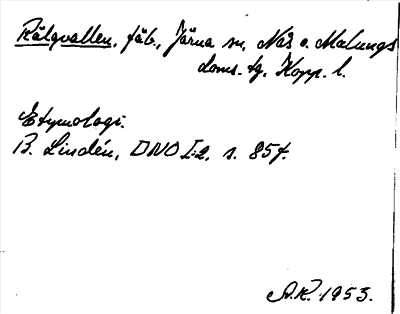 Rälgvallen, fäb., Järna sn, Nås o. Malungs
doms. tg, Kopp. l.
Etymologi.
B. Lindén, DNO I:2, s. 85 f.
A.R. 1953.